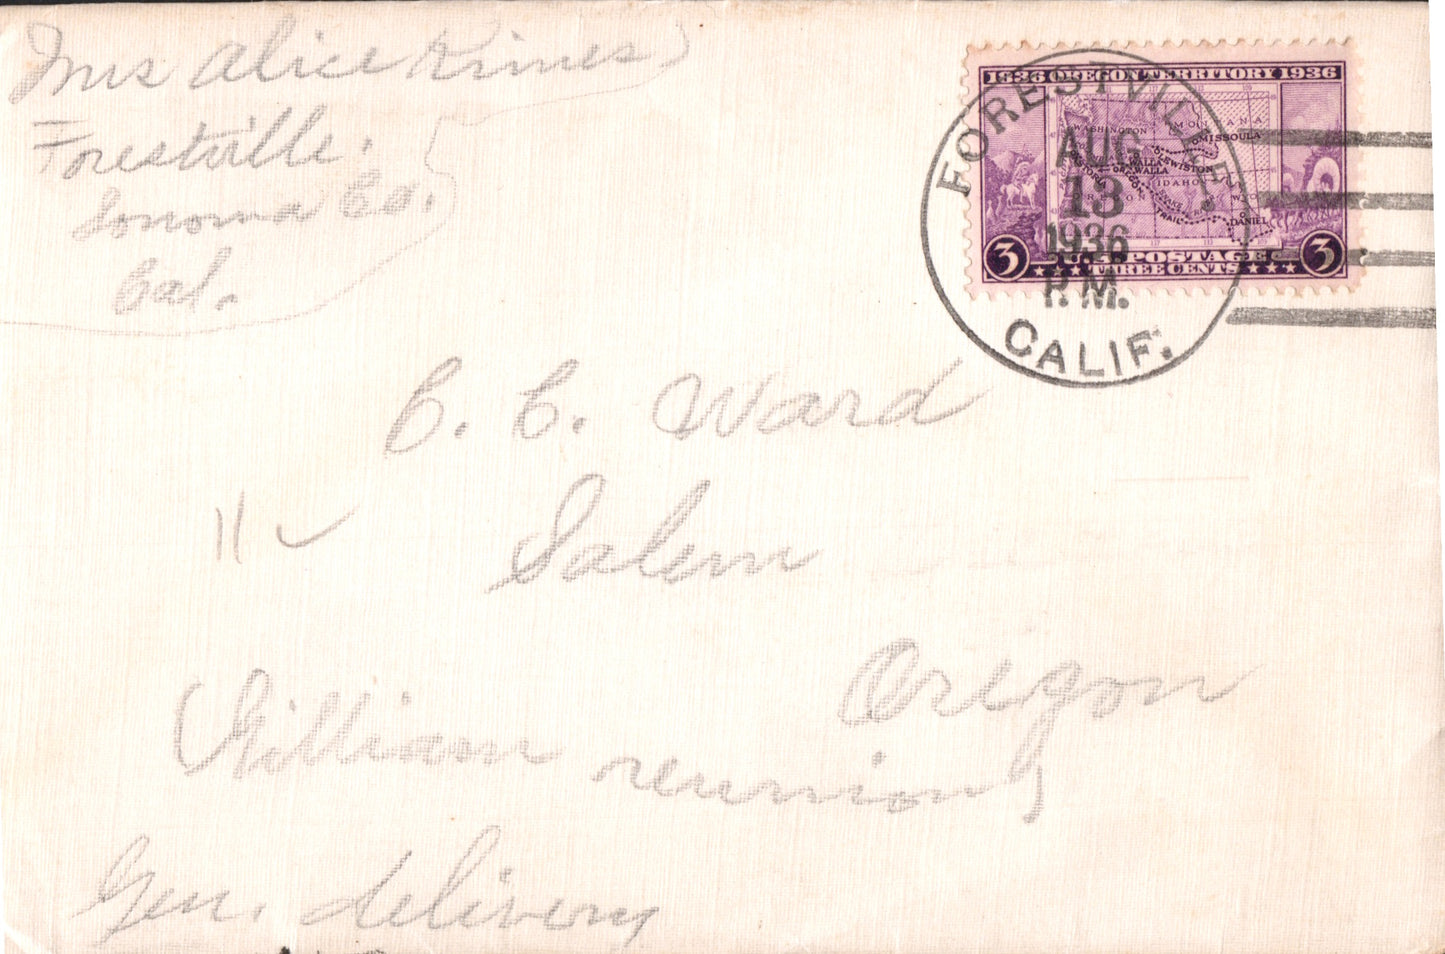 Mrs Alice Rimes
Forestville.
Sonoma Co.
Cal.
1836 OREGON TERRITORY 1936
WASHINGTON
MONTANA
MISSOULA
WALLA
WALLA
LEWISTON
IDAHO
OREGON
SNAKE
TRAIL
DANIEL
3 U.S. POSTAGE 3
THREE CENTS
FORESTVILLE
AUG
13
1936
P.M.
CALIF.
C. C. Ward
Salem
Oregon
(William reunion)
Gen. delivery